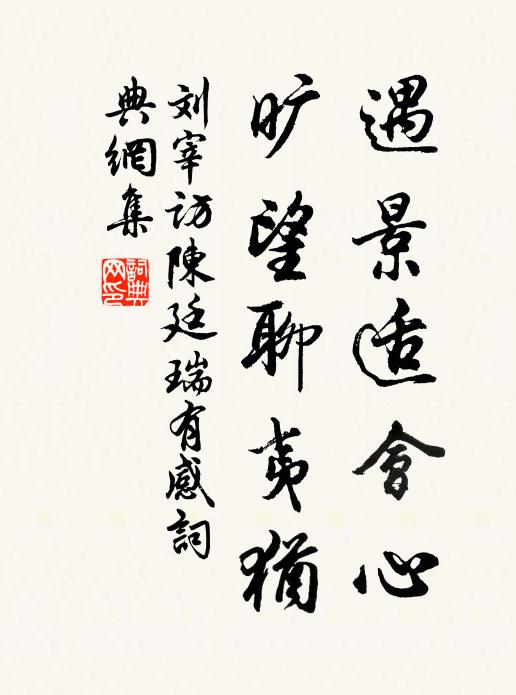 遇景适會心
旷望聊夷猶
刘宰访陳廷瑞有感詞
典網集
詞典网印